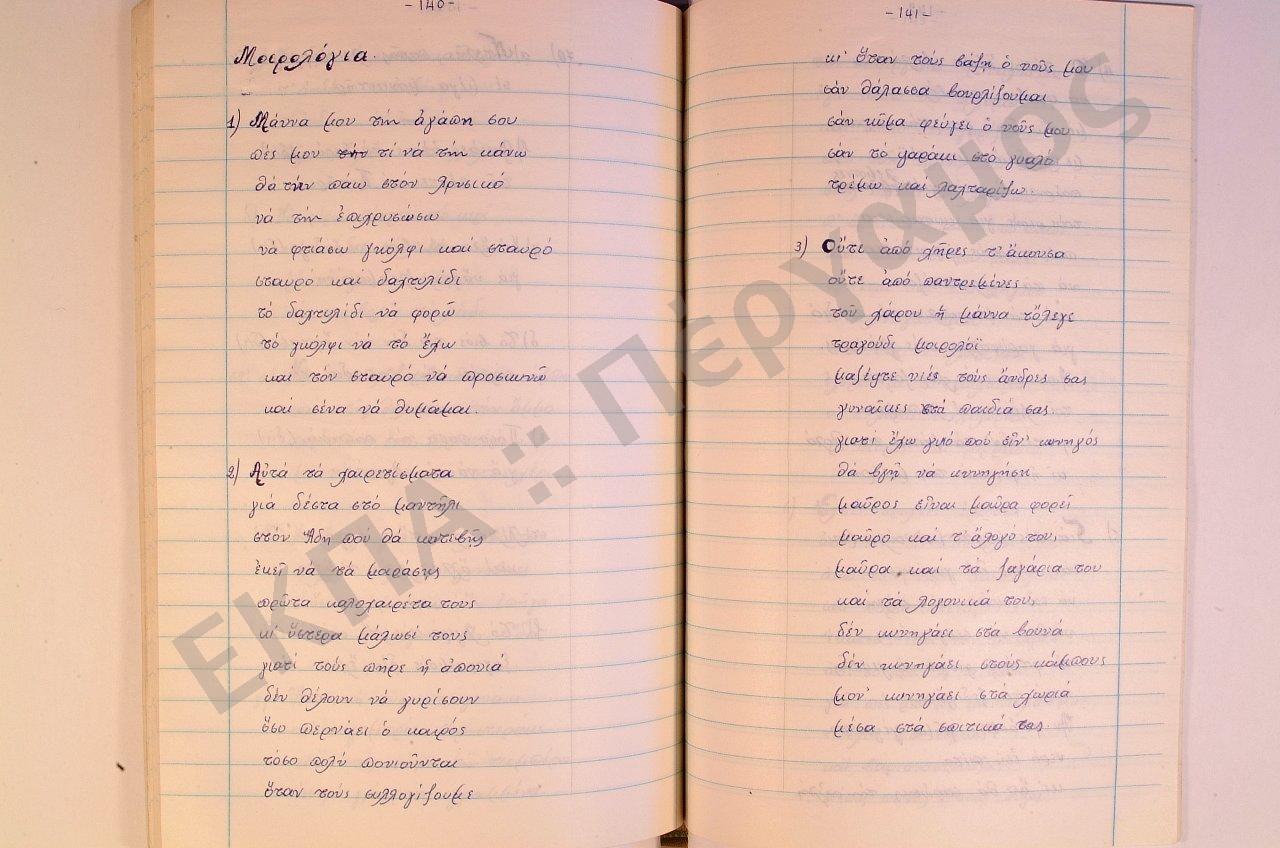 -140-
Μοιρολόγια.
1) Μάννα μου τήν ἀγάπη σου
πές μου τήν τί νά τήν κάνω
θά τήν πάω στόν Χρυσικό
νά τήν ἐπιχρυσώσω
νά φτιάσω γκόλφι καί σταυρό
σταυρό καί δαχτυλίδι
τό δαχτυλίδι νά φορῶ
τό γκόλφι νά τό ἔχω
καί τόν σταυρό νά προσκυνῶ
καί σένα νά θυμᾶμαι.
2) Αὐτά τά χαιρετίσματα
γιά δέστα στό μαντῆλι
στόν Ἅδη πού θά κατεβῇς
ἐκεῖ νά τά μοιράσῃς
πρῶτα καλοχαιρέτα τους
κι ὕστερα μάλωσί τους
γιατί τούς πῆρε ἡ ἀπονιά
δέν θέλουν νά γυρίσουν
ὅσο περνάει ὁ καιρός
τόσο πολύ πονιοῦνται
ὅταν τούς συλλογίζουμε
-141-
κι' ὅταν τούς βάζῃ ὁ νοῦς μου
σάν θάλασσα βουρλίζουμαι
σάν κῦμα φεύγει ὁ νοῦς μου
σάν τό ψαράκι στό γυαλό
τρέμω καί λαχταρίζω.
3) Οὔτε ἀπό χῆρες τ' ἄκουσα
οὔτε ἀπό παντρεμένες
τοῦ χάρου ἡ μάννα τὄλεγε
τραγούδι μοιρολόϊ
μαζέψτε νιές τούς ἄνδρες σας
γυναῖκες τά παιδιά σας
γιατί ἔχω γυιό πού εἶν' κυνηγός
θά βγῆ νά κυνηγήση
μαῦρος εἶναι μαῦρα φορεῖ
μαῦρο καί τ' ἄλογό του,
μαῦρα καί τά ζαγάρια του
καί τά λαγονικά του,
δέν κυνηγάει στά βουνά
δέν κυνηγάει στούς κάμπους
μον' κυνηγάει στά χωριά
μέσα στά σπιτικά τας.
ΕΚΠΑ :: Πέργαμος